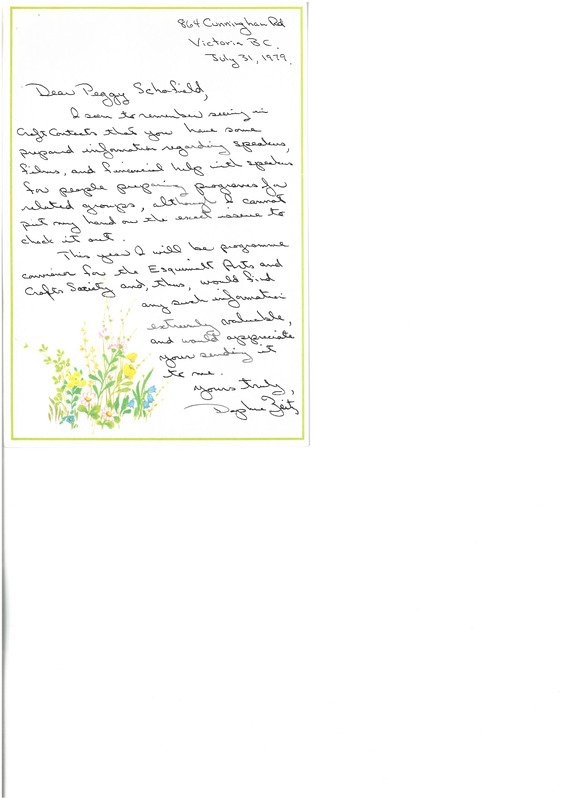 864 Cunningham Rd
Victoria B.C.
July 31, 1979.
Dear Peggy Schofield,
I seem to remember seeing in
Craft Contacts that you have some
prepared information regarding speakers,
films, and financial help with speakers
for people preparing programmes for
related groups, although I cannot
put my hand on the exact issue to
check it out.
This year I will be programme
convenor for the Esquimalt Arts and
Crafts Society and, thus, would find
any such information
extremely valuable,
and would appreciate
your sending it
to me.
Yours truly,
Daphne